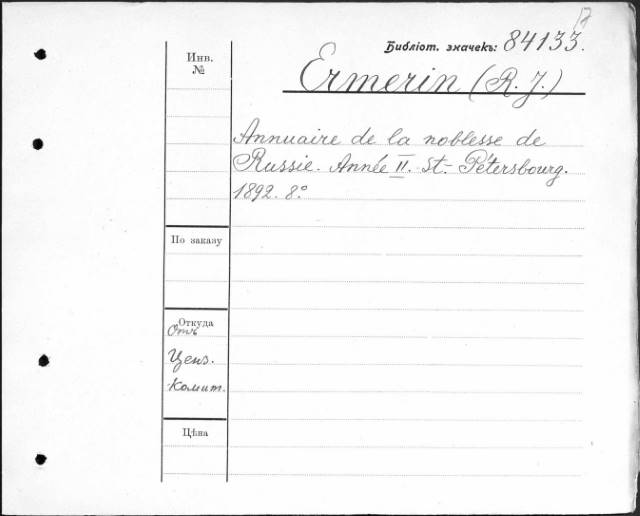 17
Библіот. значекъ: 84133.
Инв.
№
Ermerin (R. J.)
Annuaire de la noblesse de
Russie. Année II. St.-Pétersbourg.
1892. 8º
По заказу
Откуда
Отъ
Ценз.
Комит.
Цѣна